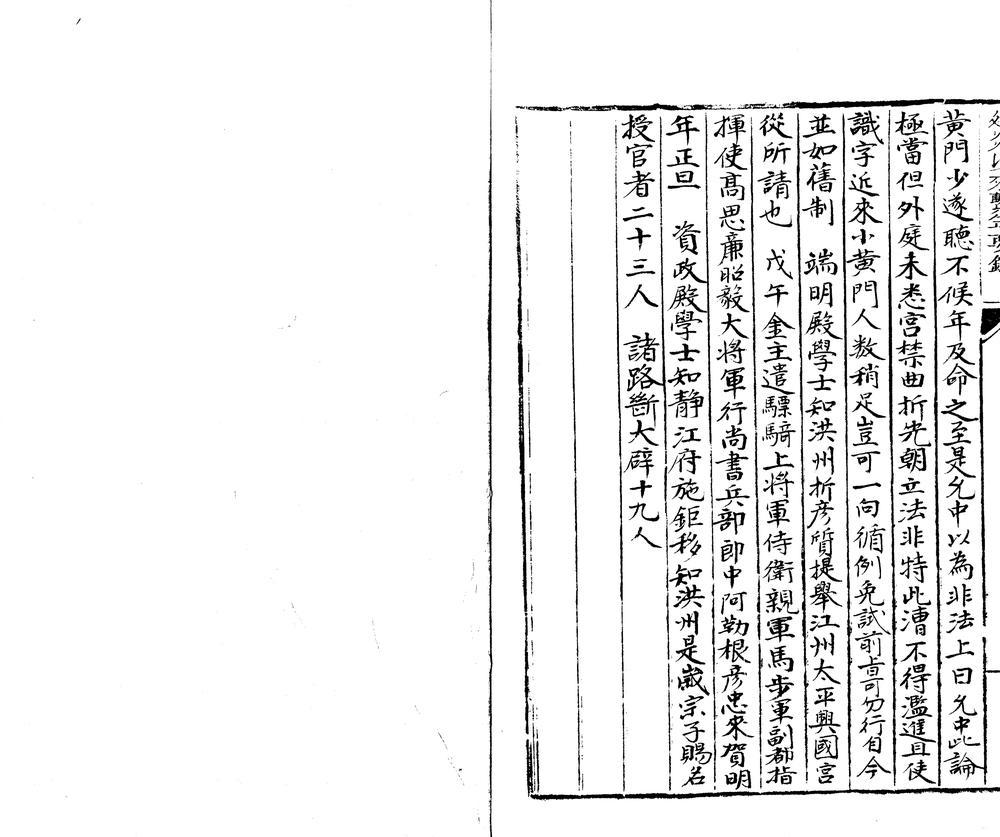 黃門少遂聽不候年及命之至是允中以為非法上曰允中此論
極當但外庭未悉宮禁曲折先朝立法非特此漕不得濫進且使
識字近來小黃門人数稍足豈可一向循例免試前旨可勿行自今
並如舊制　端明殿學士知洪州折彦質提舉江州太平興國宮
從所請也　戊午金主遣驃騎上將軍侍衛親軍馬步軍副都指
揮使髙思廉昭毅大将軍行尚書兵部郎中阿勒根彦忠來賀明
年正旦　資政殿學士知静江府施鉅移知洪州是嵗宗子賜名
授官者二十三人　諸路斷大辟十九人